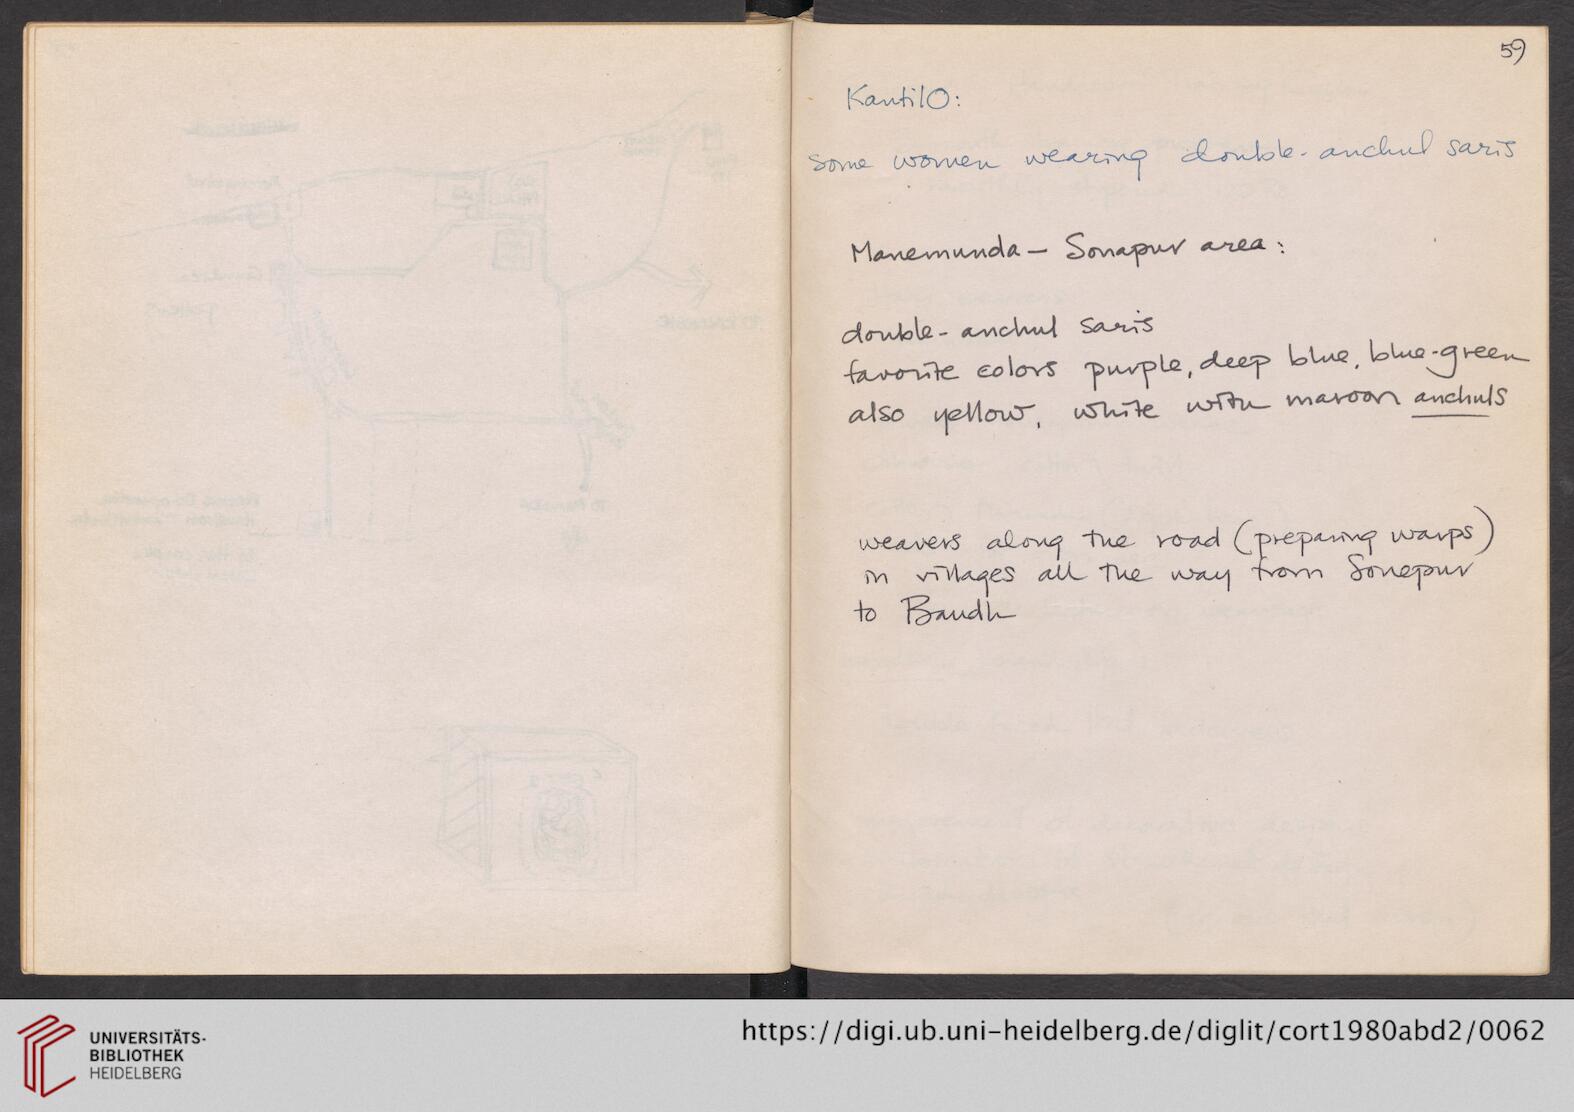 59
KantilO:
some women wearing double-anchul saris
Manemunda - Sonapur area:
double-anchul saris
favorite colors purple, deep blue, blue-green
also yellow, white with maroon anchuls
weavers along the road (preparing warps)
in villages all the way from Sonepur
to Baudh
UNIVERSITÄTS-
BIBLIOTHEK
HEIDELBERG
https://digi.ub.uni-heidelberg.de/diglit/cort1980abd2/0062